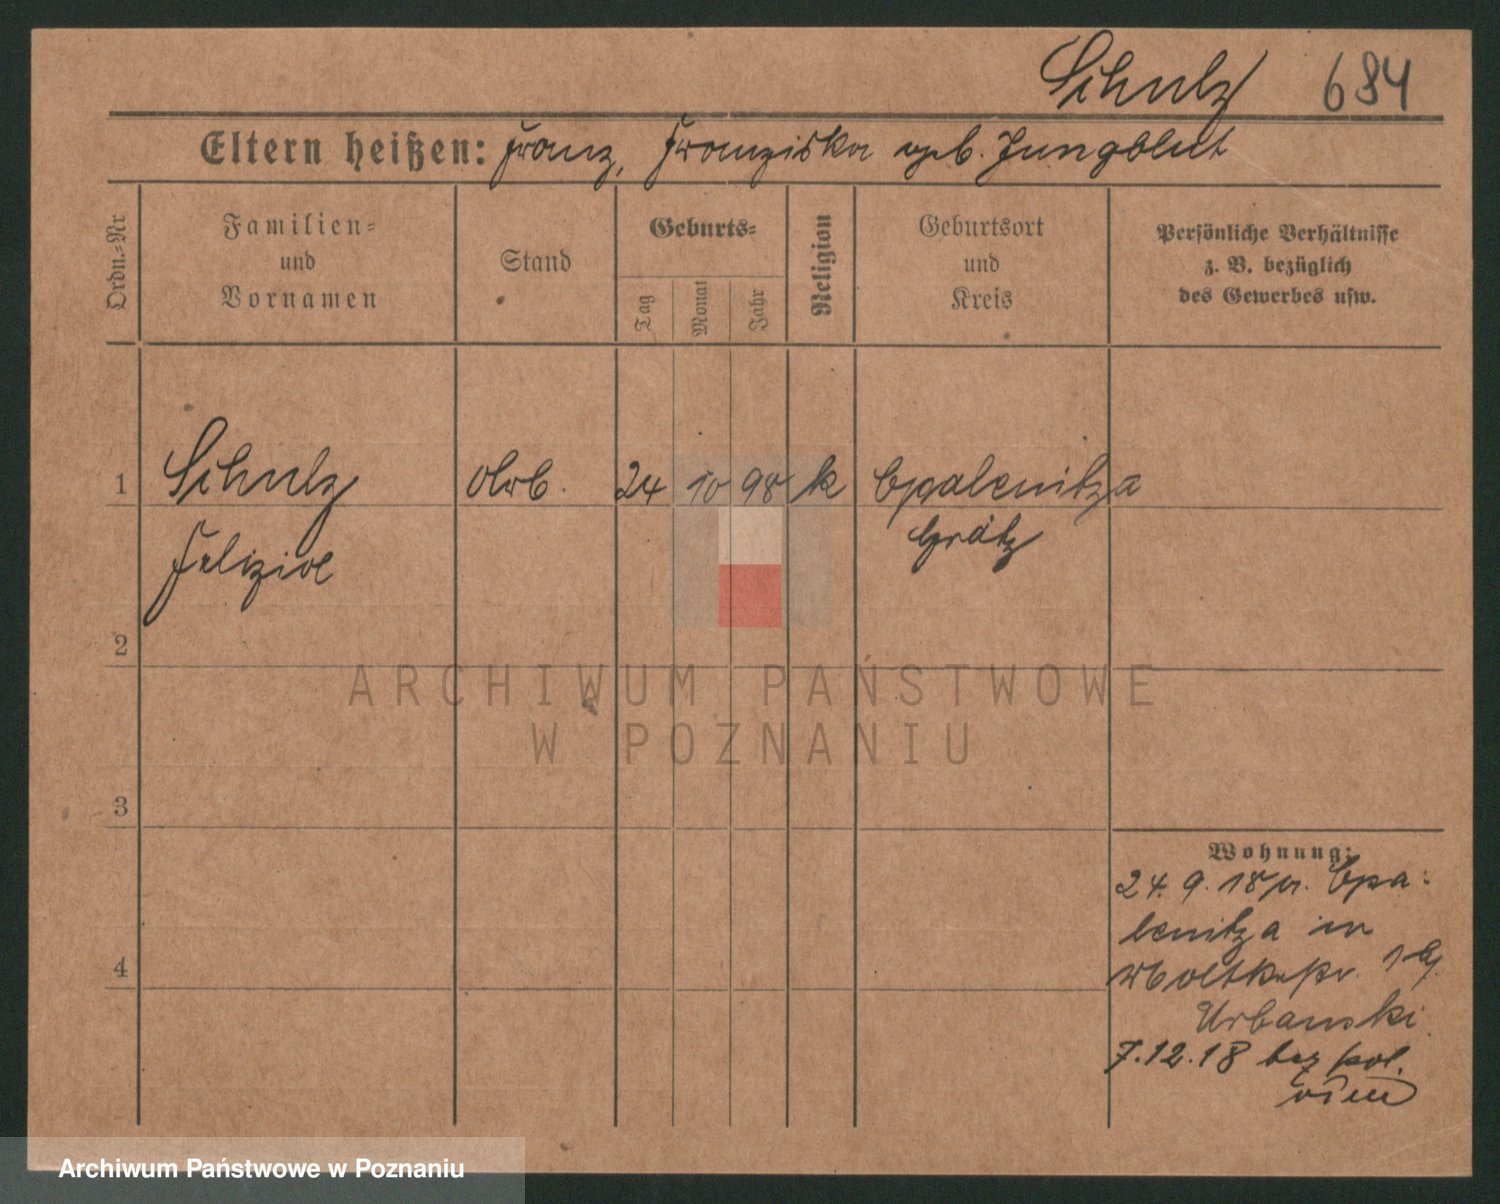 Schulz 684
Eltern heißen: Franz, Franziska geb. Jungblut
Ordn.=Nr
Familien=
und
Vornamen
Stand
Geburts=
Tag
Monat
Jahr
Religion
Geburtsort
und
Kreis
Persönliche Verhältnisse
z. B. bezüglich
des Gewerbes usw.
1 Schulz Arb. 24 10 98 k Opalenitza
Grätz
Felizia
2
ARCHIWUM PAŃSTWOWE
W POZNANIU
3
Wohnung:
24. 9. 18 v. Opa-
lenitza in
4
Moltkestr. 1 b/
Urbanski
7.12.18
Archiwum Państwowe w Poznaniu